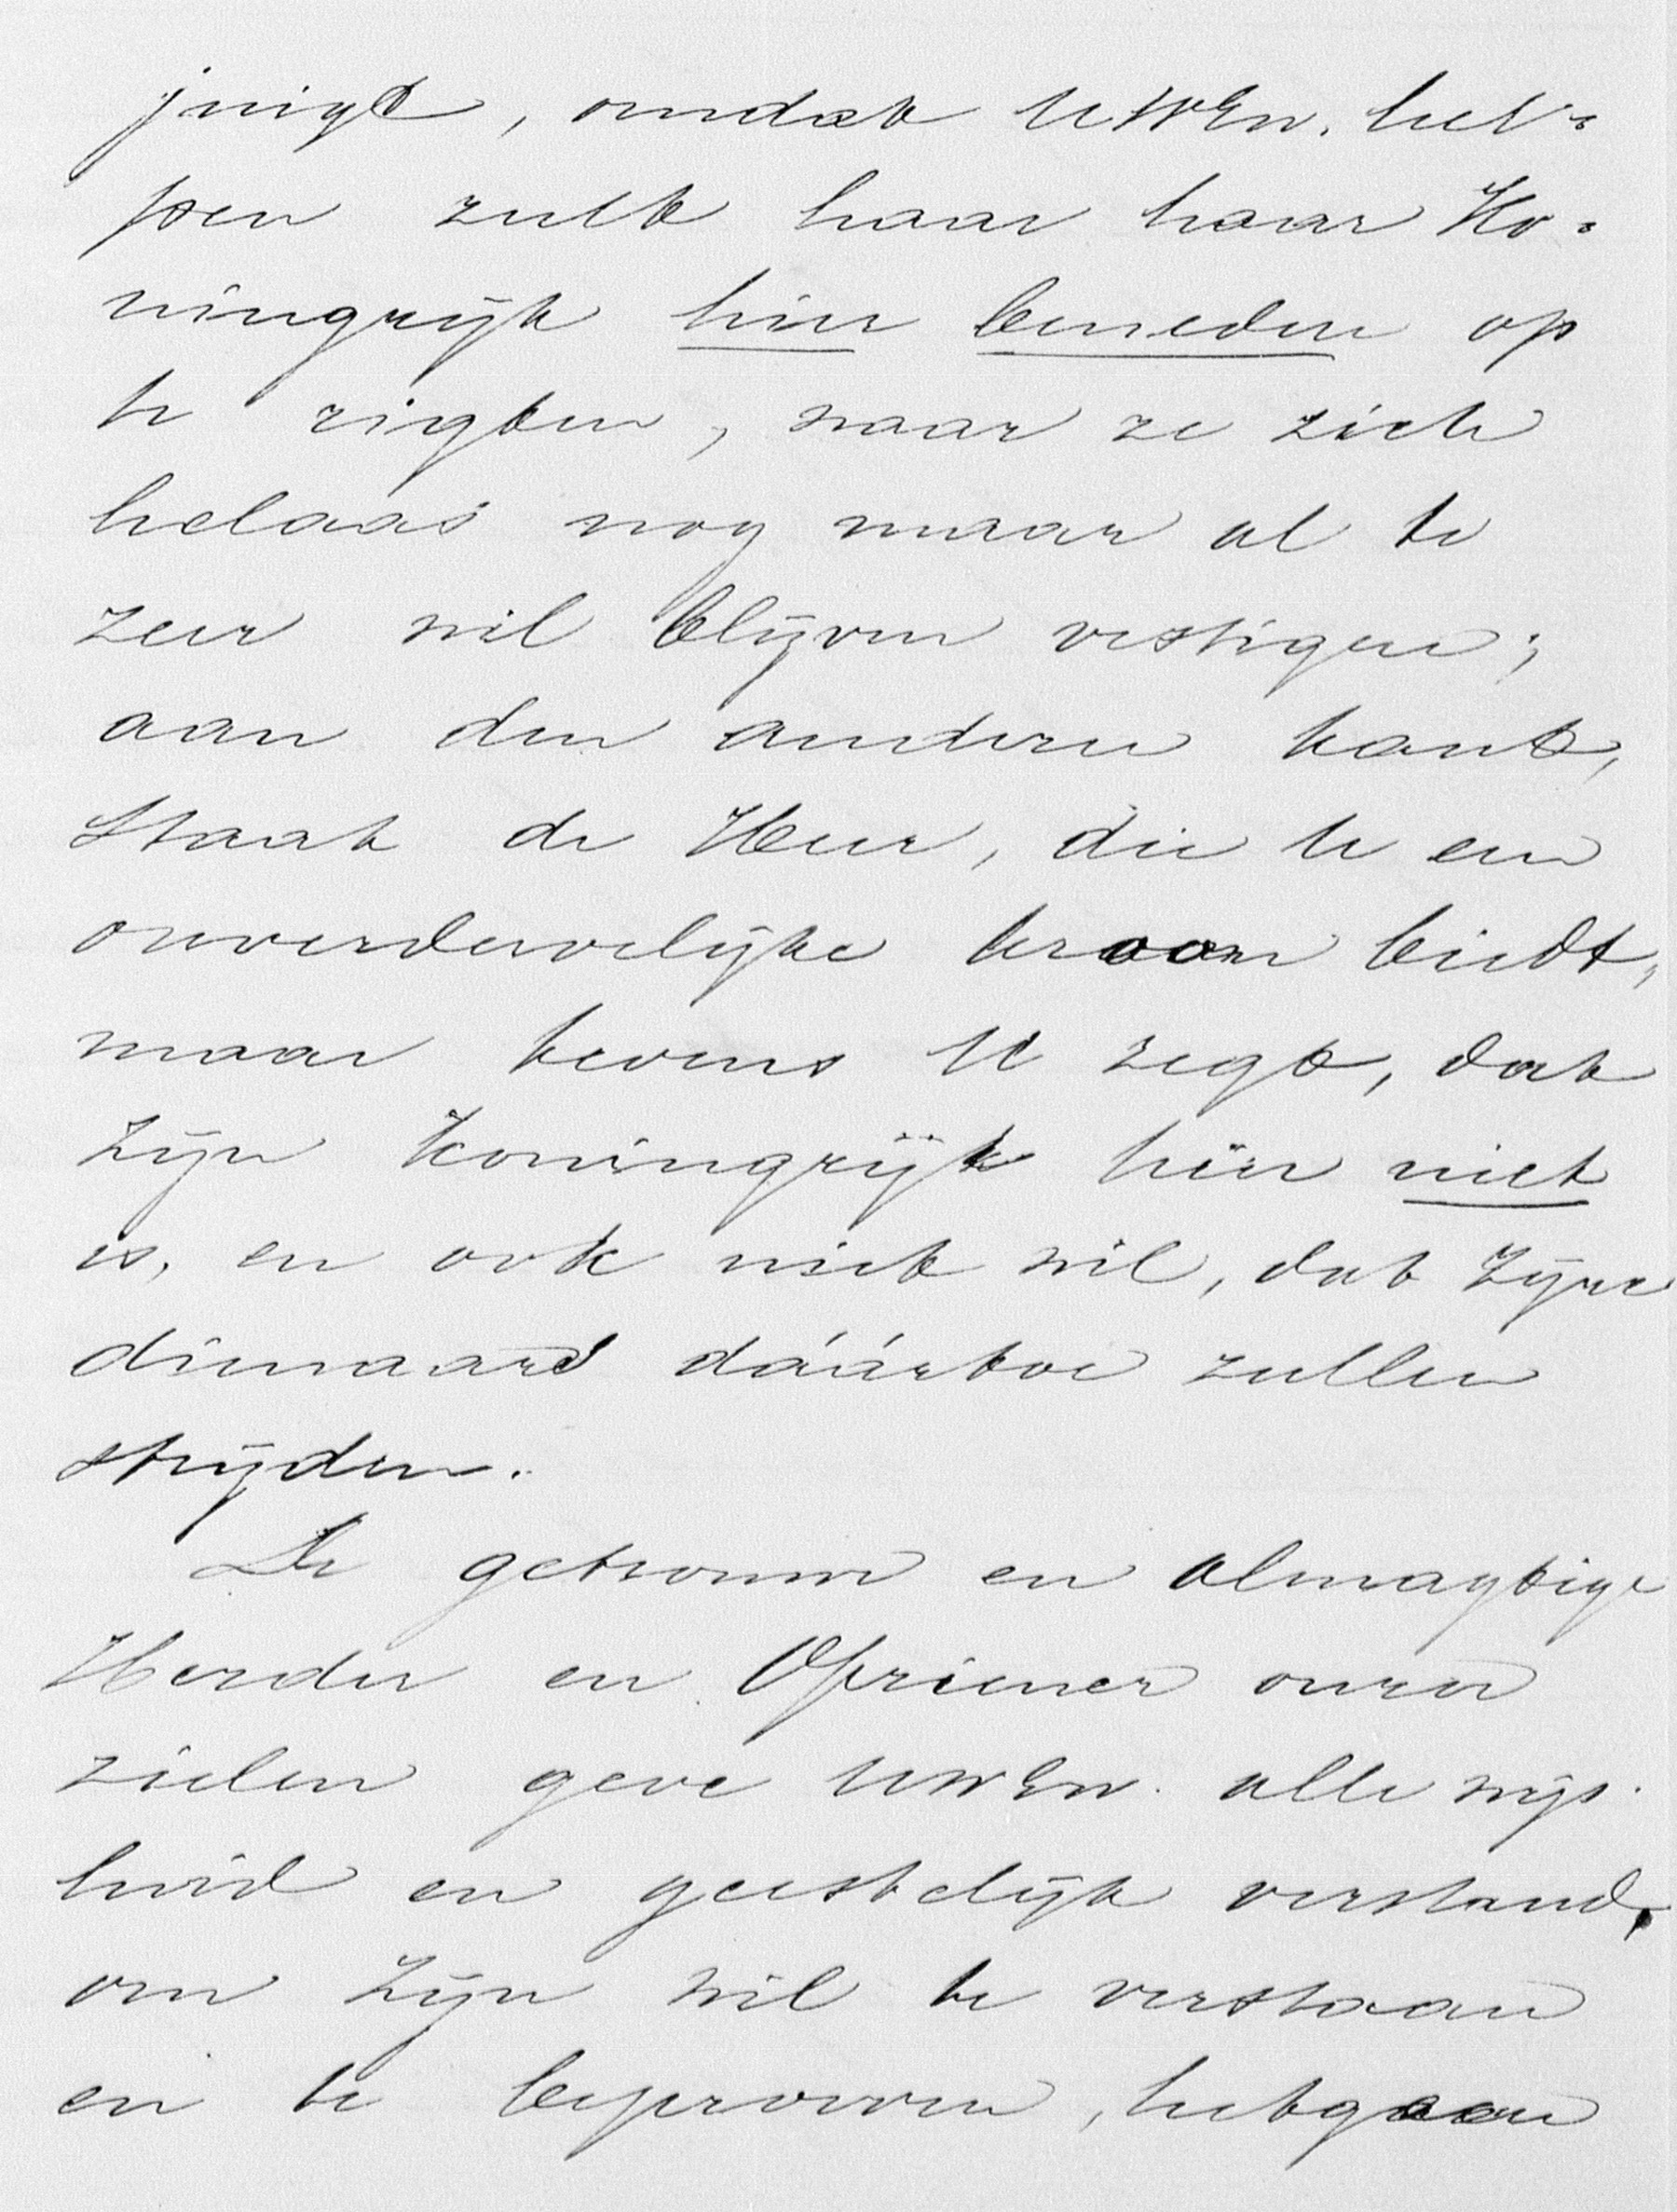 juigt, omdat UWEw. hel-
pen zult haar haar Ko-
ningrijk hier beneden op
te rigten, waar ze zich
helaas nog maar al te
zeer wil blijven vestigen;
aan den anderen kant,
staat de Heer, die U een
onverdervelijke kroon biedt,
maar tevens U zegt, dat
Zijn Koningrijk hier niet
is, en ook niet wil, dat Zijne
dienaars dáártoe zullen
strijden.
De getrouwe en almagtige
Herder en Opziener onzer
zielen geve UWEw. alle wijs-
heid en geestelijk verstand,
om Zijn wil te verstaan
en te beproeven, hetgeen